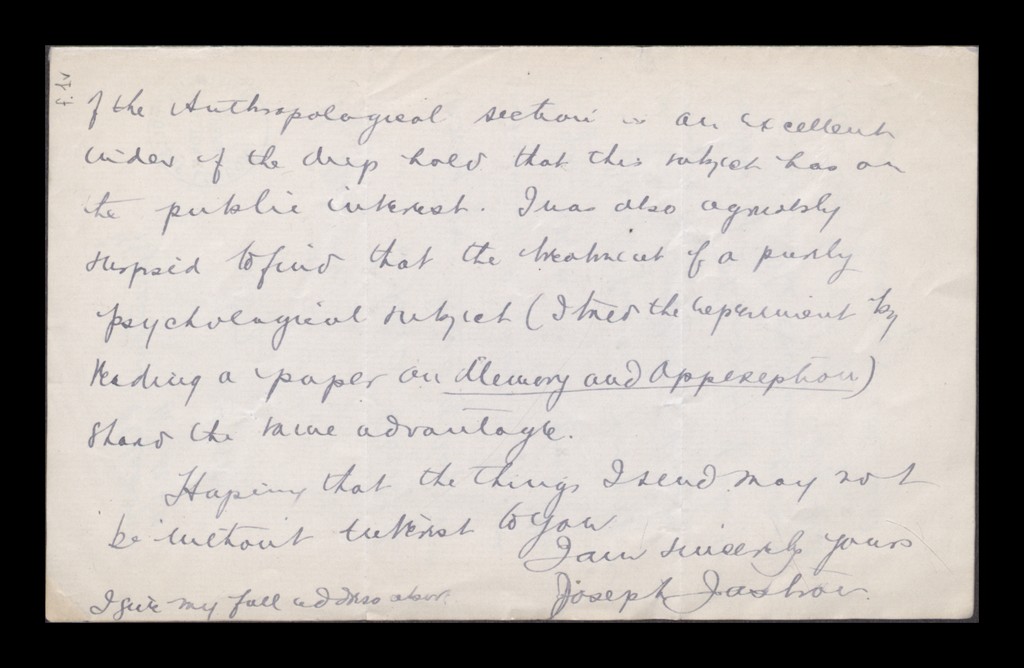 f. 1v
of the Anthropological section is an excellent
index of the deep hold that this subject has on
the public interest. I was also agreeably
surprised to find that the treatment of a purely
psychological subject (I tried the experiment by
reading a paper on Memory and Apperception)
shared the same advantage.
Hoping that the things I send may not
be without interest to you
I am sincerely yours
Joseph Jastrow.
I give my full address above.